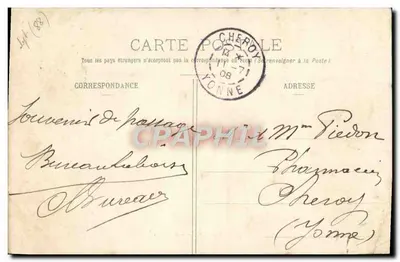 CARTE POSTALE
Tous les pays étrangers n'acceptent pas la correspondance au recto (Se renseigner à la Poste)
CHEROY
11 -7
08
YONNE
CORRESPONDANCE
ADRESSE
Souvenir de passage
Bureau
à Mme Piedon
Pharmacien
Cheroy
(Yonne)
CPAPHIL